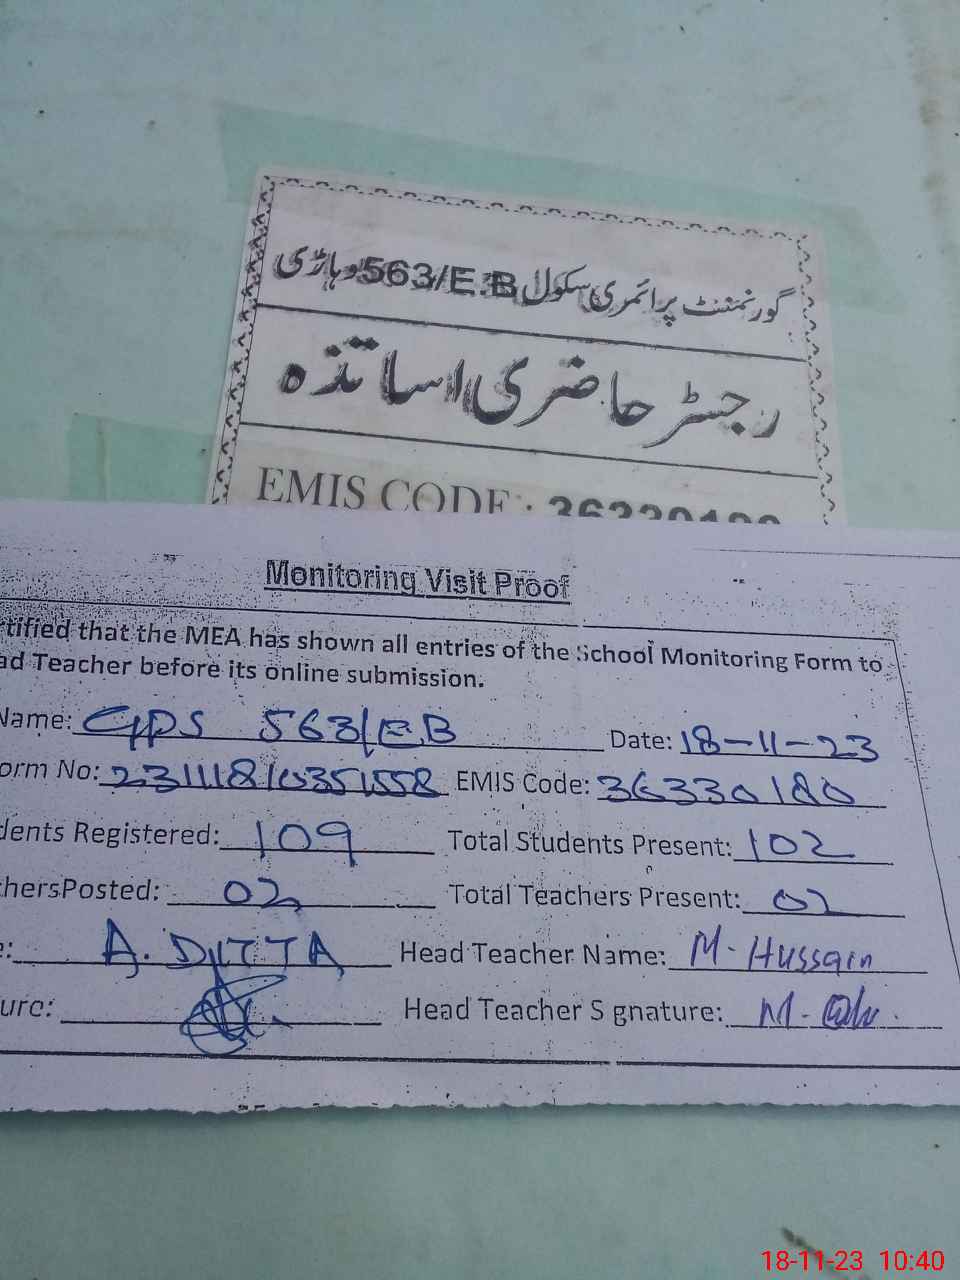 گورنمنٹ پرائمری سکول 563/E.B وہاڑی
رجسٹر حاضری اساتذہ
EMIS CODE: 36330180
Monitoring Visit Proof
rtified that the MEA has shown all entries of the School Monitoring Form to
ad Teacher before its online submission.
Name: GPS 563/EB Date: 18-11-23
orm No: 23111810351558 EMIS Code: 36330180
dents Registered: 109 Total Students Present: 102
chersPosted: 02 Total Teachers Present: 02
e: A. DITTA Head Teacher Name: M. Hussain
ure: Head Teacher S gnature: M.
18-11-23 10:40